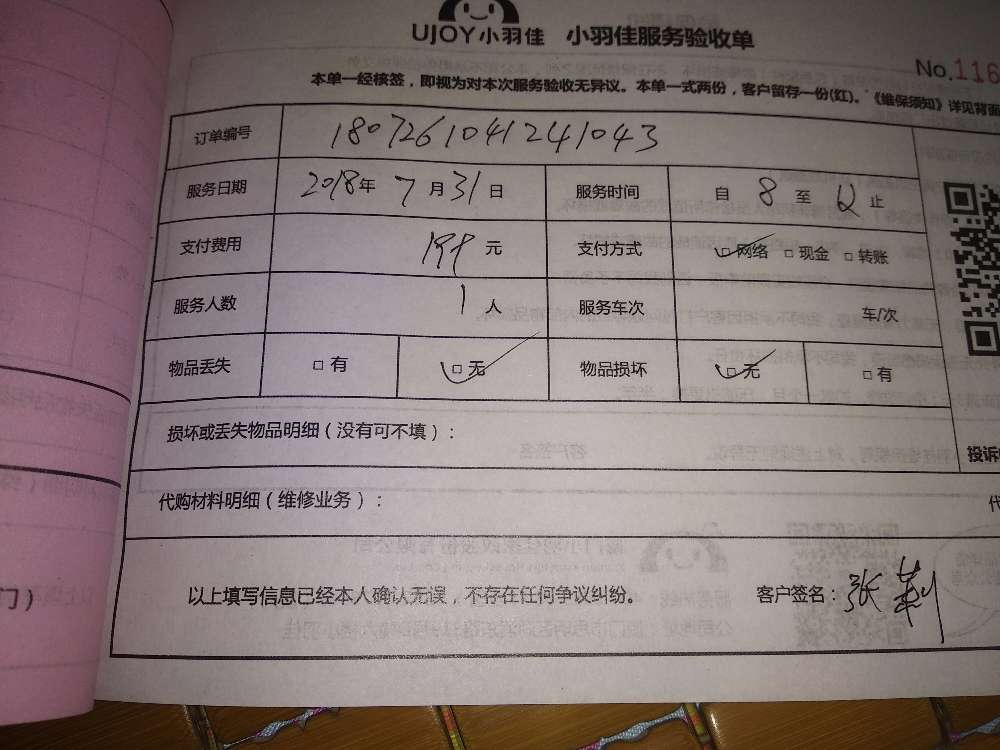 UJOY小羽佳 小羽佳服务验收单
No.116
本单一经核签，即视为对本次服务验收无异议。本单一式两份，客户留存一份(红)。《维保须知》详见背面
订单编号 180726104124 1043
服务日期 2018年 7月31日 服务时间 自 8 至 12 止
支付费用 199元 支付方式 □网络 □现金 □转账
服务人数 1人 服务车次 车/次
物品丢失 □有 □无 物品损坏 □无 □有
损坏或丢失物品明细（没有可不填）：
投诉
代购材料明细（维修业务）： 代
以上填写信息已经本人确认无误，不存在任何争议纠纷。 客户签名：张
门）